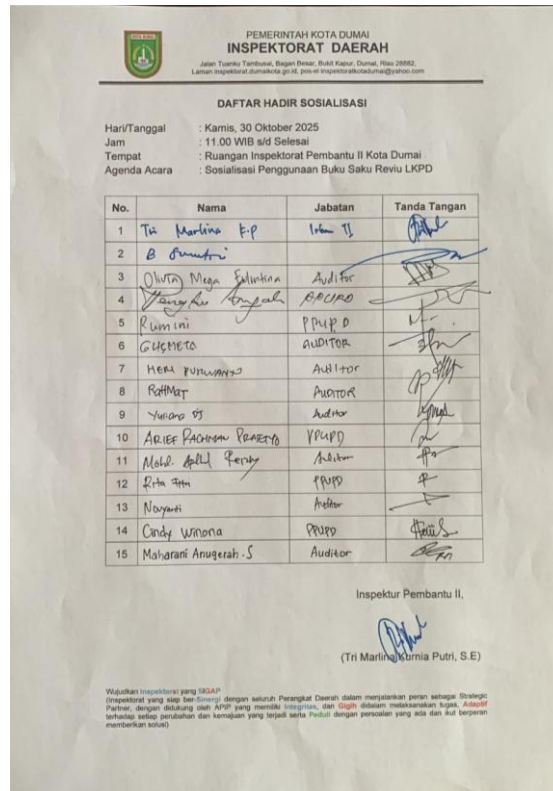 PEMERINTAH KOTA DUMAI
INSPEKTORAT DAERAH
Jalan Tuanku Tambusai, Bagan Besar, Bukit Kapur, Dumai, Riau 28882,
Laman inspektorat.dumaikota.go.id, pos-el inspektoratkotadumai@yahoo.com
DAFTAR HADIR SOSIALISASI
Hari/Tanggal : Kamis, 30 Oktober 2025
Jam : 11.00 WIB s/d Selesai
Tempat : Ruangan Inspektorat Pembantu II Kota Dumai
Agenda Acara : Sosialisasi Penggunaan Buku Saku Reviu LKPD
No. Nama Jabatan Tanda Tangan
1 Tri Marlina K.P Irban II
2 B
3 Olivia Mega Auditor
4 PPUPD
5 Rumini PPUPD
6 GUSMETA AUDITOR
7 HERI PURWANTO AUDITOR
8 RAHMAT AUDITOR
9 Auditor
10 ARIEF RACHMAN PRASETYO PPUPD
11 Mohd. Auditor
12 Rita PPUPD
13 Novyanti Auditor
14 Cindy Winona PPUPD
15 Maharani Anugerah.S Auditor
Inspektur Pembantu II,
(Tri Marlina Kurnia Putri, S.E)
Wujudkan Inspektorat yang SIGAP
(Inspektorat yang siap ber-Sinergi dengan seluruh Perangkat Daerah dalam menjalankan peran sebagai Strategic
Partner, dengan didukung oleh APIP yang memiliki Integritas, dan Gigih didalam melaksanakan tugas, Adaptif
terhadap setiap perubahan dan kemajuan yang terjadi serta Peduli dengan persoalan yang ada dan ikut berperan
memberikan solusi)